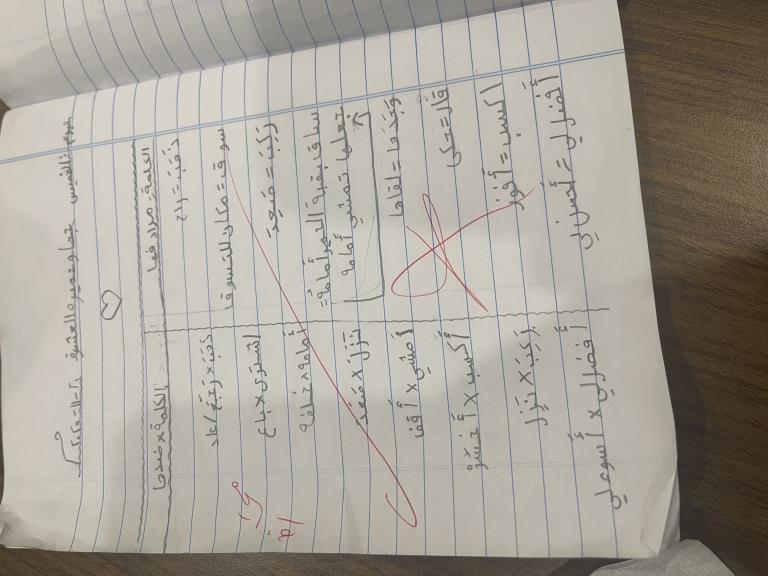 يوم الخميس جحا وحميره العشرة
الكلمة = مرادفها
ذَهَبَ = راح
سوق = مكان للتسوق
رَكِبَ = صَعِدَ
ساق بقية الحمير أمامه =
جعلها تمشي أمامه
وَجَدَها = لقاها
قال = حكى
أكسب = أفوز
أفضل لي = أحسن لي
الكلمة × ضدها
ذهب × رَجَعَ / عاد
اشترى × باع
أمامه × خلفه
نَزَلَ × صَعِدَ
أمشي × أقف
أكسب × أخسر
رَكِبَ × نَزَلَ
أفضل لي × أسوء لي